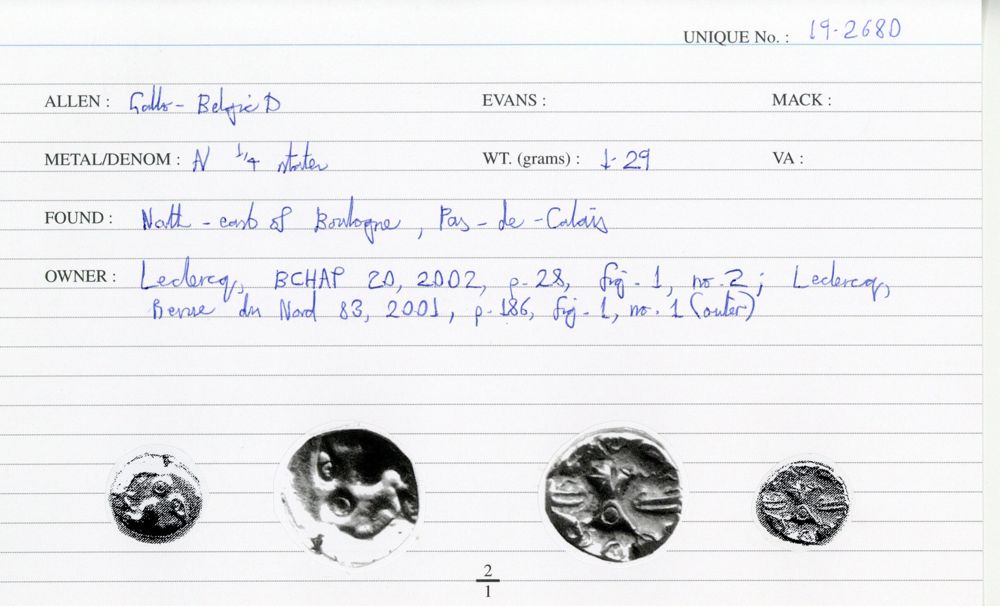 UNIQUE No. : 19-2680
ALLEN : Gallo-Belgic D EVANS : MACK :
METAL/DENOM : N 1/4 stater WT. (grams) : 1.29 VA :
FOUND : North-east of Boulogne, Pas-de-Calais
OWNER : Leclercq, BCHAP 20, 2002, p.28, fig.1, no.2; Leclercq,
Revue du Nord 83, 2001, p.186, fig.1, no.1 (outer)
2
1